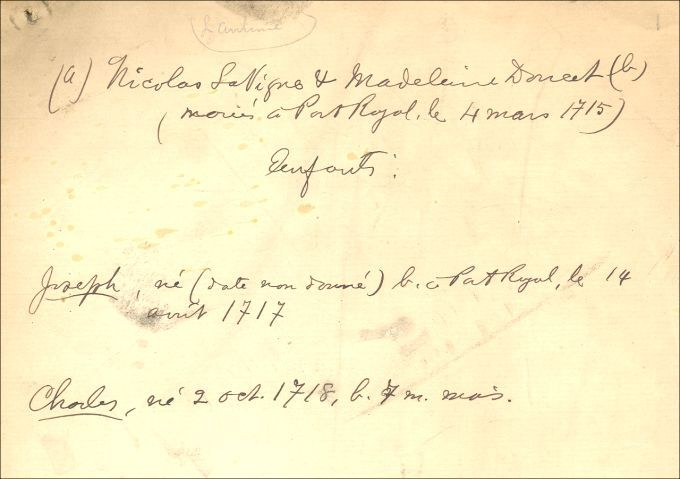 (a) Nicolas LaVigne & Madeleine Doucet (b)
(mariés à Port Royal, le 4 mars 1715)
Enfants:
Joseph, né (date non donné) b. à Port Royal, le 14
août 1717
Charles, né 2 oct. 1718, b. 7 m. mois.